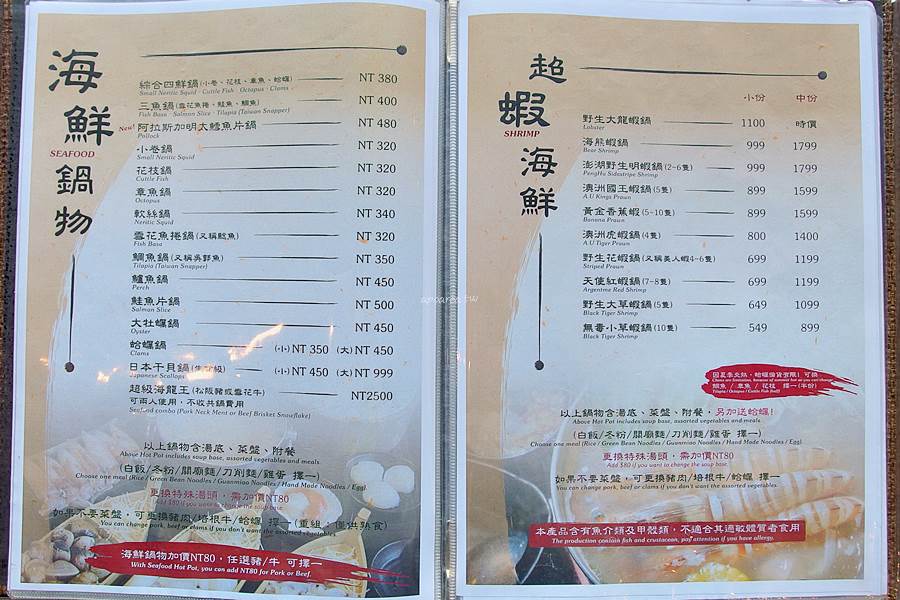 海鮮鍋物
SEAFOOD
綜合四鮮鍋(小卷、花枝、章魚、蛤蠣) NT 380
Small Neritic Squid · Cuttle Fish · Octopus · Clams
三魚鍋(雪花魚捲、鮭魚、鯛魚) NT 400
Fish Basa · Salmon Slice · Tilapia (Taiwan Snapper)
New! 阿拉斯加明太鱈魚片鍋 NT 480
Pollock
小卷鍋 NT 320
Small Neritic Squid
花枝鍋 NT 320
Cuttle Fish
章魚鍋 NT 320
Octopus
軟絲鍋 NT 340
Neritic Squid
雪花魚捲鍋(又稱鯰魚) NT 320
Fish Basa
鯛魚鍋(又稱吳郭魚) NT 350
Tilapia (Taiwan Snapper)
鱸魚鍋 NT 450
Perch
鮭魚片鍋 NT 500
Salmon Slice
大牡蠣鍋 NT 450
Oyster
蛤蠣鍋 (小) NT 350 (大) NT 450
Clams
日本干貝鍋 (小) NT 450 (大) NT 999
Japanese Scallops
超級海龍王(松阪豬或雪花牛) NT2500
可兩人使用,不收共鍋費用
Seafood combo (Pork Neck Ment or Beef Brisket Snowflake)
以上鍋物含湯底、菜盤、附餐
Above Hot Pot includes soup base, assorted vegetables and meals
(白飯/冬粉/關廟麵/刀削麵/雞蛋 擇一)
Choose one meal (Rice / Green Bean Noodles / Guanmiao Noodles / Hand Made Noodles / Egg)
更換特殊湯頭,需加價NT80
Add $80 if you want to change the soup base
如果不要菜盤,可更換豬肉/培根牛/蛤蠣 擇一
You can change pork, beef or clams if you don't want the assorted vegetables
海鮮鍋物加價NT80,任選豬/牛 可擇一
With Seafood Hot Pot, you can add NT80 for Pork or Beef.
超蝦海鮮
SHRIMP
小份 中份
野生大龍蝦鍋 1100 時價
Lobster
海熊蝦鍋 999 1799
Bear Shrimp
澎湖野生明蝦鍋(2~6隻) 999 1799
PengHu Sidestripe Shrimp
澳洲國王蝦鍋(5隻) 899 1599
A.U Kings Prawn
黃金香蕉蝦(5~10隻) 899 1599
Banana Prawn
澳洲虎蝦鍋(4隻) 800 1400
A.U Tiger Prawn
野生花蝦鍋(又稱美人蝦4~6隻) 699 1199
Striped Prawn
天使紅蝦鍋(7~8隻) 699 1199
Argentine Red Shrimp
野生大草蝦鍋(5隻) 649 1099
Black Tiger Shrimp
無毒小草蝦鍋(10隻) 549 899
Black Tiger Shrimp
因夏季炎熱,蛤蠣備貨有限!可換
鯛魚 / 章魚 / 花枝 擇一(半份)
Tilapia / Octopus / Cuttle Fish (half)
以上鍋物含湯底、菜盤、附餐,另加送蛤蠣!
Above Hot Pot includes soup base, assorted vegetables and meals
(白飯/冬粉/關廟麵/刀削麵/雞蛋 擇一)
Choose one meal (Rice / Green Bean Noodles / Guanmiao Noodles / Hand Made Noodles / Egg)
更換特殊湯頭,需加價NT80
Add $80 if you want to change the soup base
如果不要菜盤,可更換豬肉/培根牛/蛤蠣 擇一
You can change pork, beef or clams if you don't want the assorted vegetables
本產品含有魚介類及甲殼類,不適合其過敏體質者食用
The production contain fish and crustacean, pay attention if you have allergy.